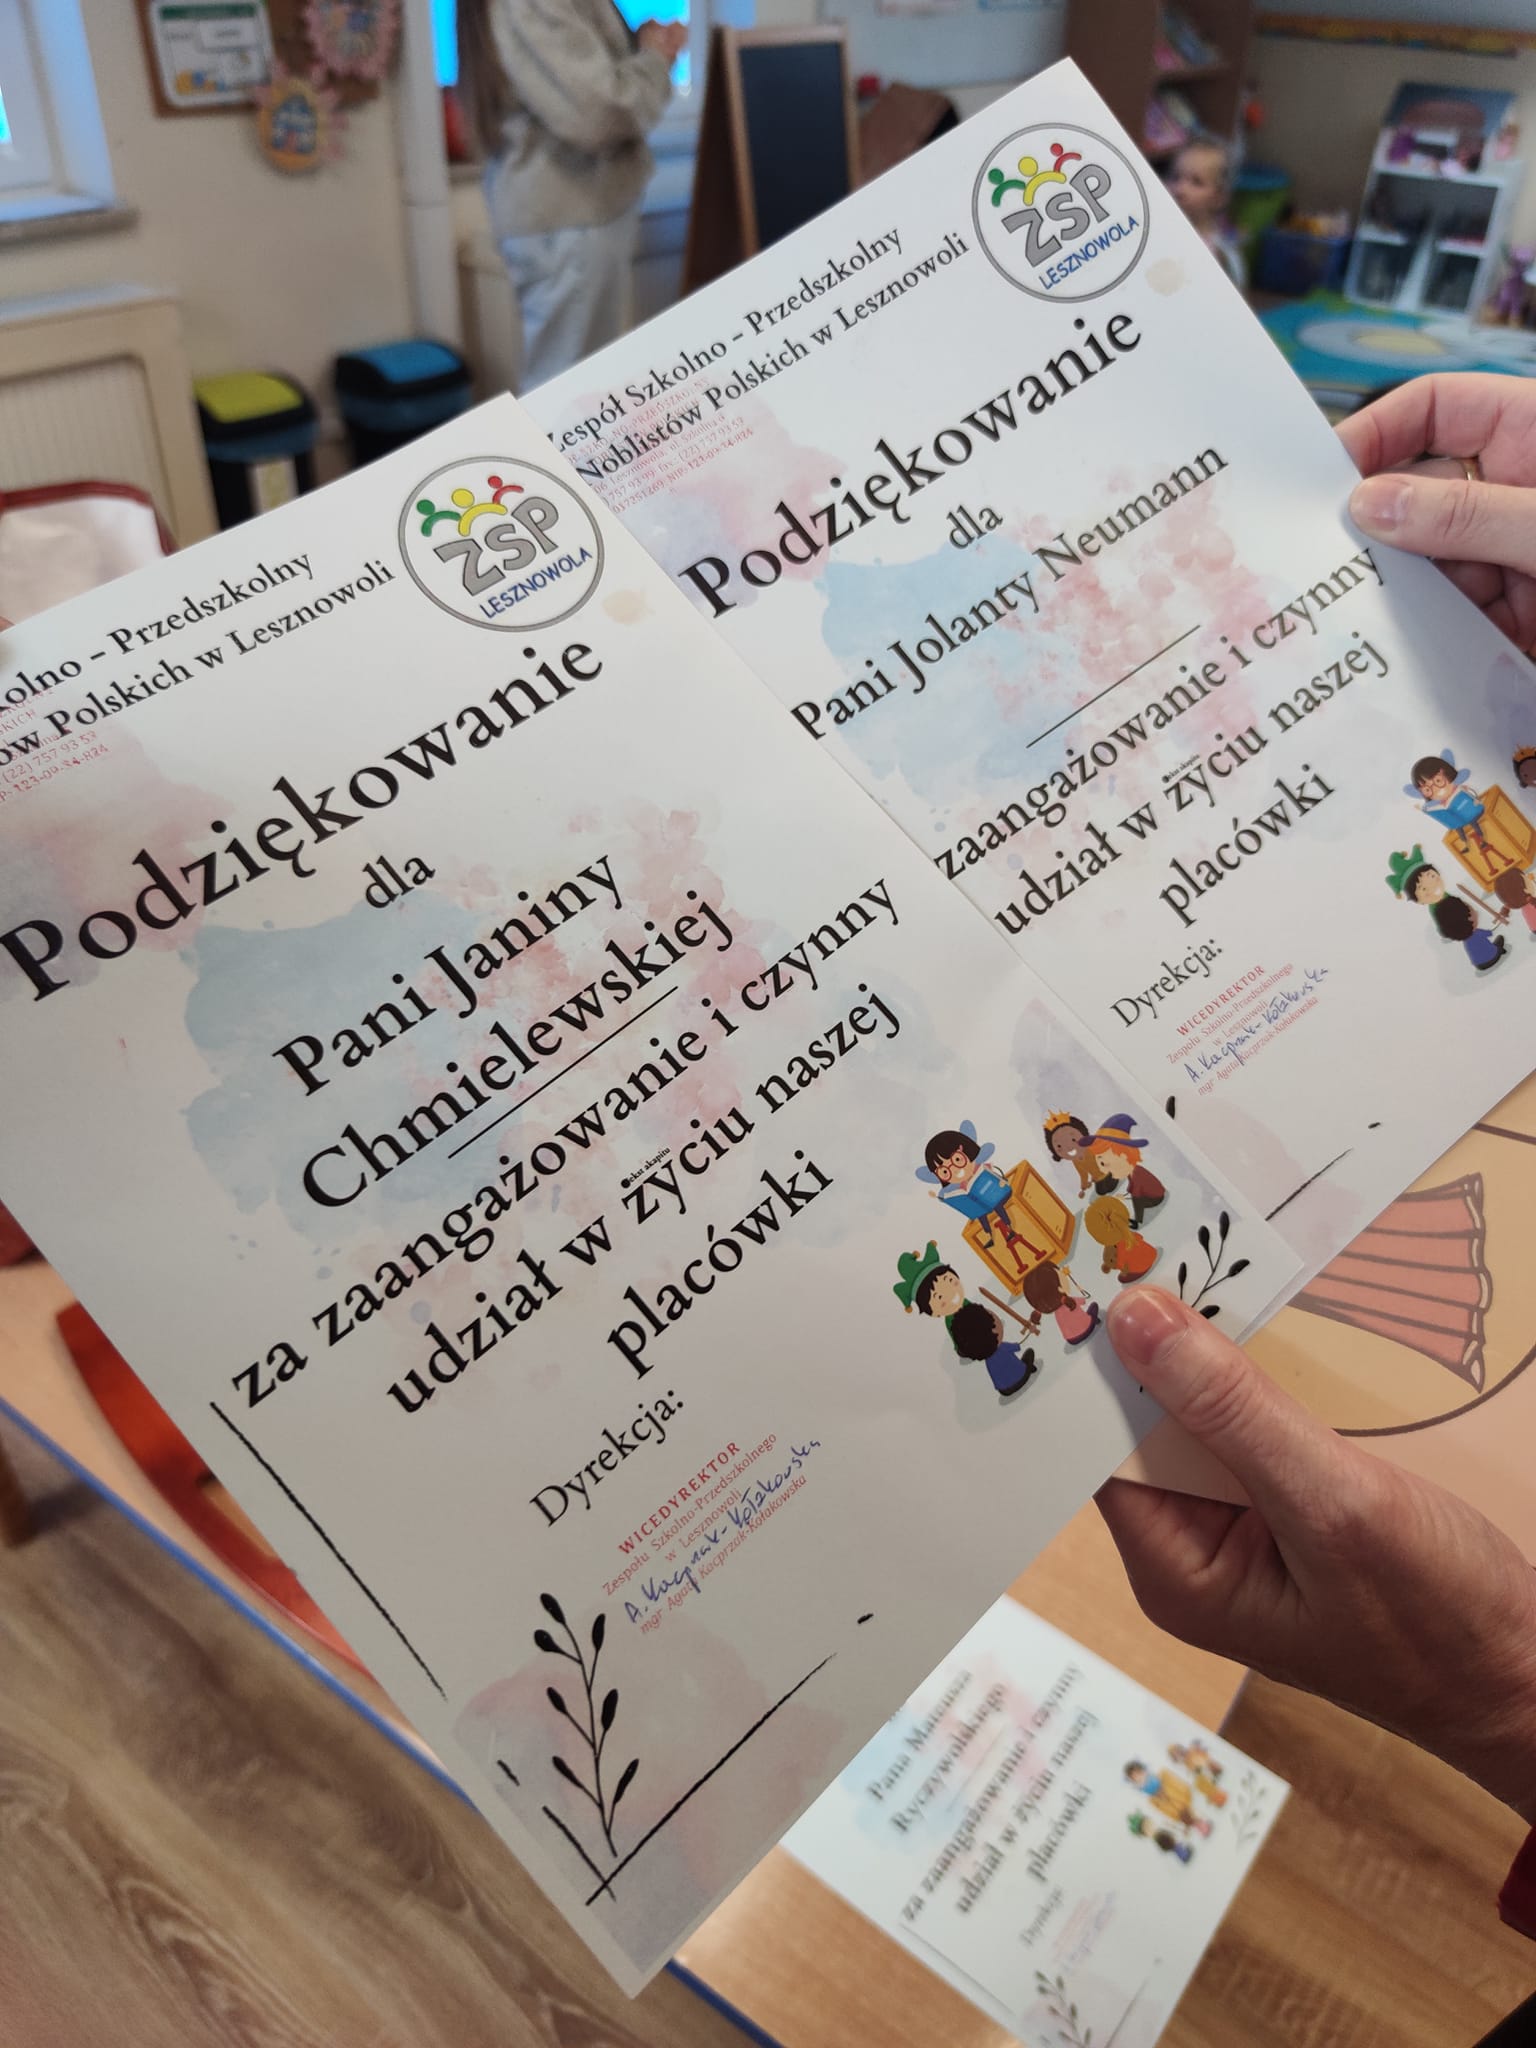 kolno - Przedszkolny
ów Polskich w Lesznowoli
(22) 757 93 53
ZSP
LESZNOWOLA
Podziękowanie
dla
Pani Janiny
Chmielewskiej
za zaangażowanie i czynny
ekst akapitu
udział w życiu naszej
placówki
Dyrekcja:
WICEDYREKTOR
Zespołu Szkolno-Przedszkolnego
w Lesznowoli
mgr Agata Kacprzak-Kołakowska
Zespół Szkolno - Przedszkolny
Noblistów Polskich w Lesznowoli
ZSP
LESZNOWOLA
Podziękowanie
dla
Pani Jolanty Neumann
zaangażowanie i czynny
ekst akapitu
udział w życiu naszej
placówki
Dyrekcja:
WICEDYREKTOR
Zespołu Szkolno-Przedszkolnego
w Lesznowoli
mgr Agata Kacprzak-Kołakowska
Pana Mateusza
Ryczywolskiego
za zaangażowanie i czynny
udział w życiu naszej
placówki
Dyrekcja: